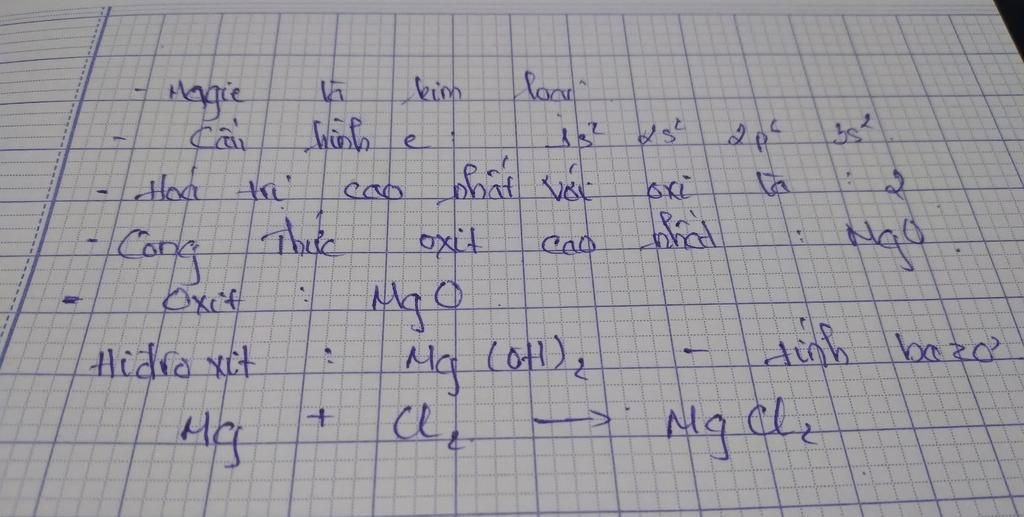 - Magie là kim loại
- Cấu hình e : 1s² 2s² 2p⁶ 3s²
- Hoá trị cao nhất với oxi là : 2
- Công thức oxit cao nhất : MgO.
- Oxit : MgO
Hidroxit : Mg(OH)₂ - tính bazơ
Mg + Cl₂ → MgCl₂